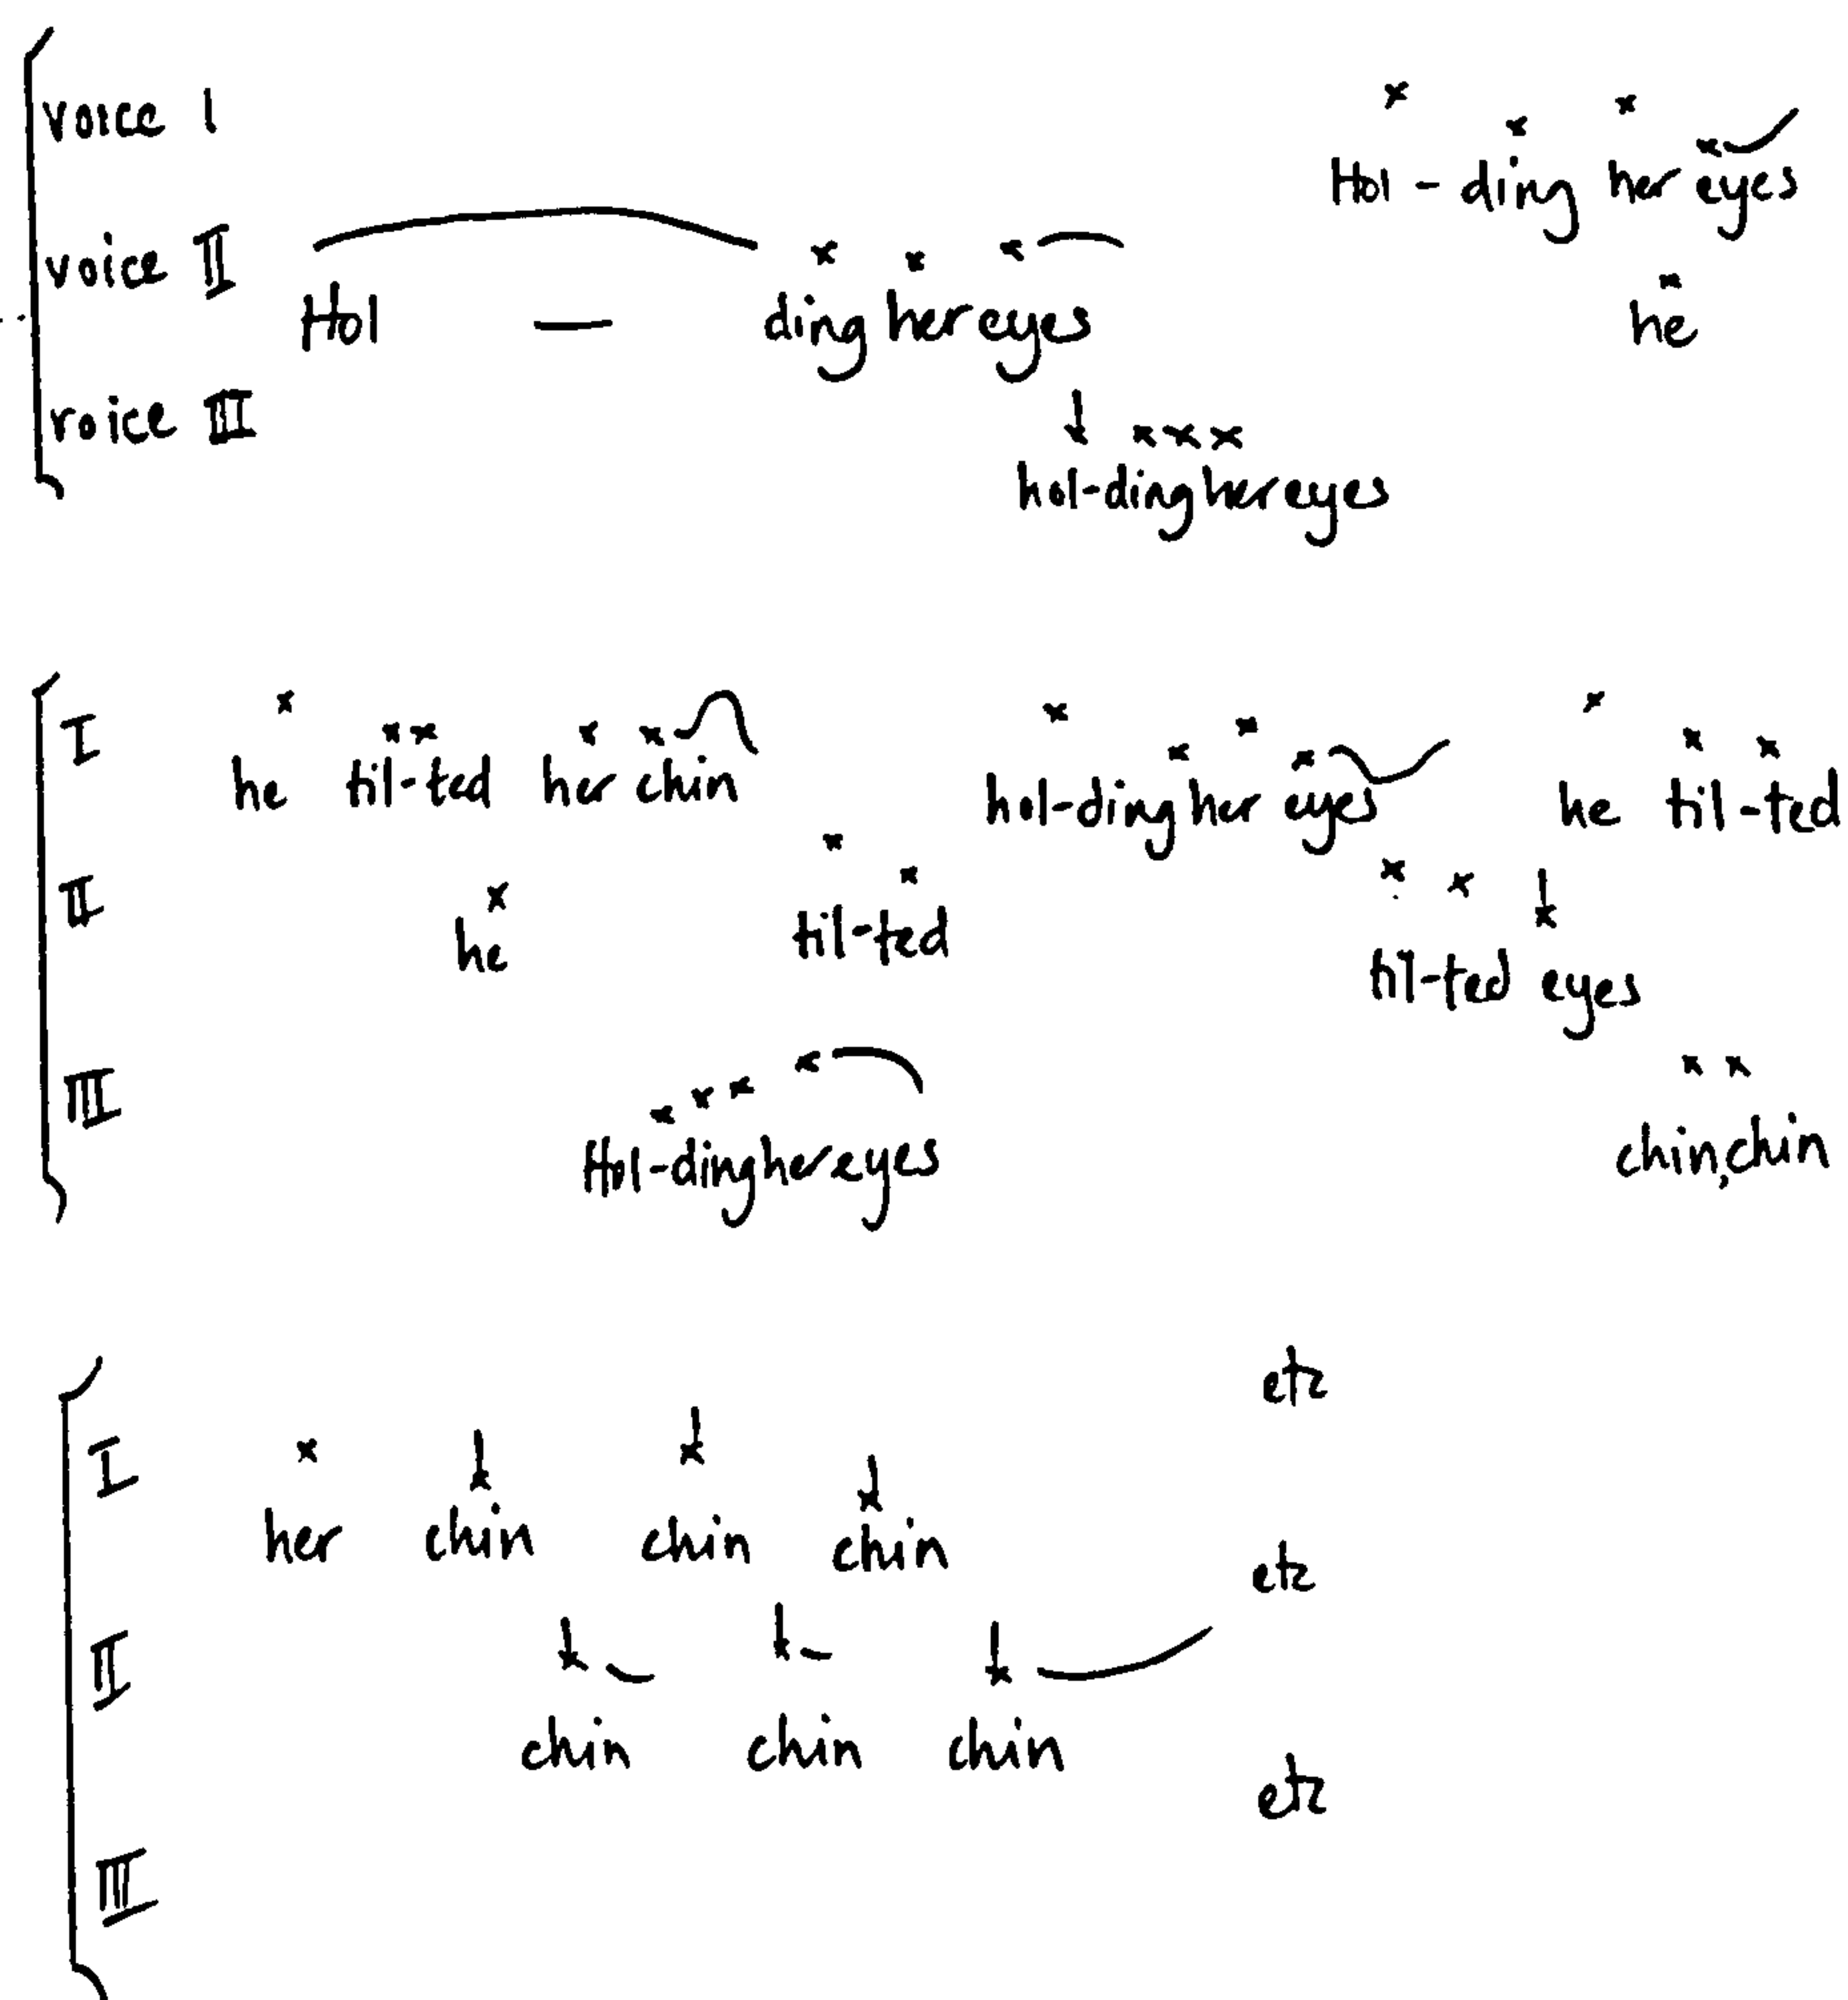 voice I Hol-ding her eyes
voice II Hol — ding her eyes he
voice III hol-ding her eyes
I he til-ted her chin hol-ding her eyes he til-ted
II he til-ted til-ted eyes
III Hol-ding her eyes chin, chin
etc
I her chin chin chin
etc
II chin chin chin
etc
III